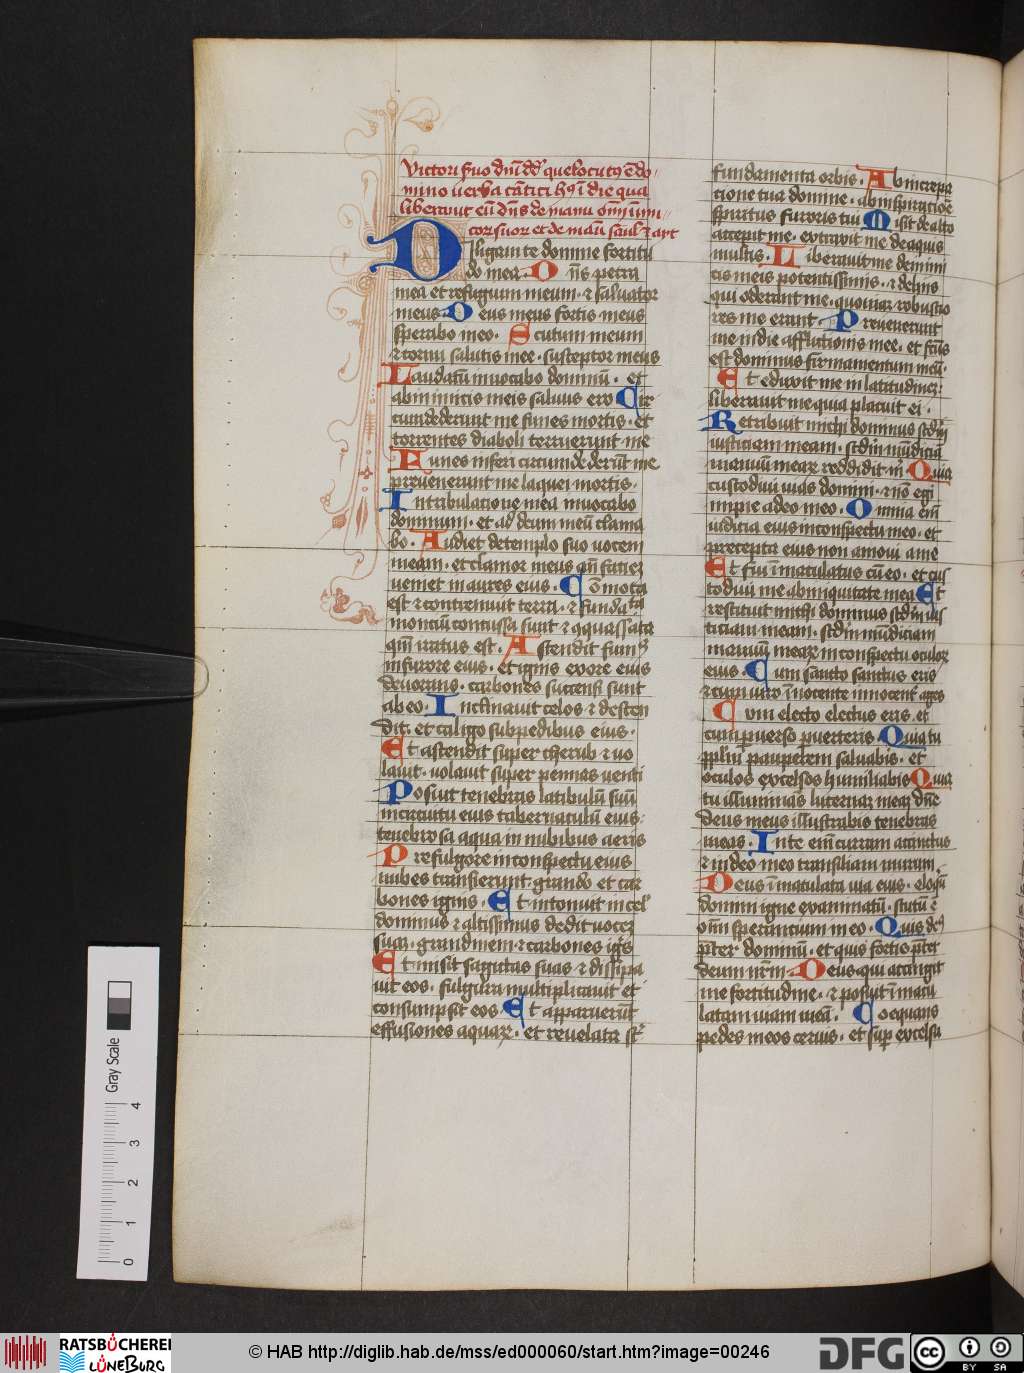 Victori s̄uo dn̄i dd̄ que locut9 ē do
mino uerba cātici h9 ī die qua
liberauit eū dn̄s de manu om̄i inimi
corum suor et de manu saul ⁊ ayt
Diligam te domine fortitu
do mea. D n̄s petra
mea et refugium meum. ⁊ saluator
meus. Deus meus fortis meus
sperabo meo. Scutum meum
⁊ cornu salutis mee. susceptor meus
Laudatū inuocabo dominū. et
ab inimicis meis saluus ero Cir
cumdederunt me funes mortis. et
torrentes diaboli terruerunt me
Funes inferi circumdederūt me
preuenerunt me laquei mortis.
In tribulatione mea inuocabo
dominum. et ad deum meū clama
bo. Audiet de templo suo uocem
meam. et clamor meus qn̄ faciet
ueniet in aures eius. Cōmota
est ⁊ contremuit terra. ⁊ fundata
montiū concussa sunt ⁊ 9quassata
qm̄ iratus est. Ascendit fum9
in furore eius. et ignis ex ore eius
deuorans. carbones succensi sunt
ab eo. Inclinauit celos ⁊ descen
dit. et caligo sub pedibus eius.
Et ascendit super cherub ⁊ uo
lauit. uolauit super pennas uenti
Posuit tenebras latibulū suū
in circuitu eius tabernaculū eius.
tenebrosa aqua in nubibus aeris
Prefulgore in conspectu eius
nubes transierunt. grando et car
bones ignis. Et intonuit in cel
dominus ⁊ altissimus dedit uocez
suaz. grandinem. ⁊ carbones igīs
Et misit sagittas suas ⁊ dissipa
uit eos. fulgura multiplicauit et
consumpsit eos. Et apparuerūt
effusiones aquarꝝ. et reuelata st̄
fundamenta orbis. Ab increpa
cione tua domine. ab inspiratiōe
spiritus furoris tui Misit de alto
accepit me. extraxit me de aquis
multis. Liberauit me de inimi
cis meis potentissimis. ⁊ de hiis
qui oderant me. quoniaz robustio
res me erant. Preuenerunt
me in die afflictionis mee. et fcūs
est dominus firmamentum meū.
Et eduxit me in latitudinez:
liberauit me quia placuit ei.
Retribuit michi dominus scdm̄
iusticiam meam. scdm̄ mūdicia
manuū mearꝝ reddidit m̄ Quia
custodiui uias domini. ⁊ nō egi
impie a deo meo. Omnia em̄
iudicia eius in conspectu meo. et
precepta eius non amoui a me
Et fui īmaculatus cū eo. et cus
todiui me ab iniquitate mea Et
restituit michi dominus scdm̄ ius
ticiam meam. scdm̄ mūdiciam
manuū mearꝝ in conspectu oculorꝝ
eius. Cum sancto sanctus eris
⁊ cum uiro īnocente innocent̄ ages
Cum electo electus eris. et
cum puerso puerteris. Quia tu
pplm̄ pauperem saluabis. et
oculos excelsos humiliabis Quia
tu illuminas lucernaz meaz dn̄e
deus meus illustrabis tenebras
meas. In te em̄ curram accinctus
⁊ in deo meo transiliam murum.
Deus īmaculata uia eius. eloqū
domini igne examinatū. scutū ē
om̄ sperantium in eo. Quis de9
preter dominū. et quis fortis p̄ter
deum nr̄m. Deus qui accingit
me fortitudine. ⁊ posuit īmacu
latam uiam meā. Coequans
pedes meos ceruis. et sup excelsa
Gray Scale
0 1 2 3 4
RATSBÜCHEREI
LÜNEBURG
© HAB http://diglib.hab.de/mss/ed000060/start.htm?image=00246
DFG
cc BY SA